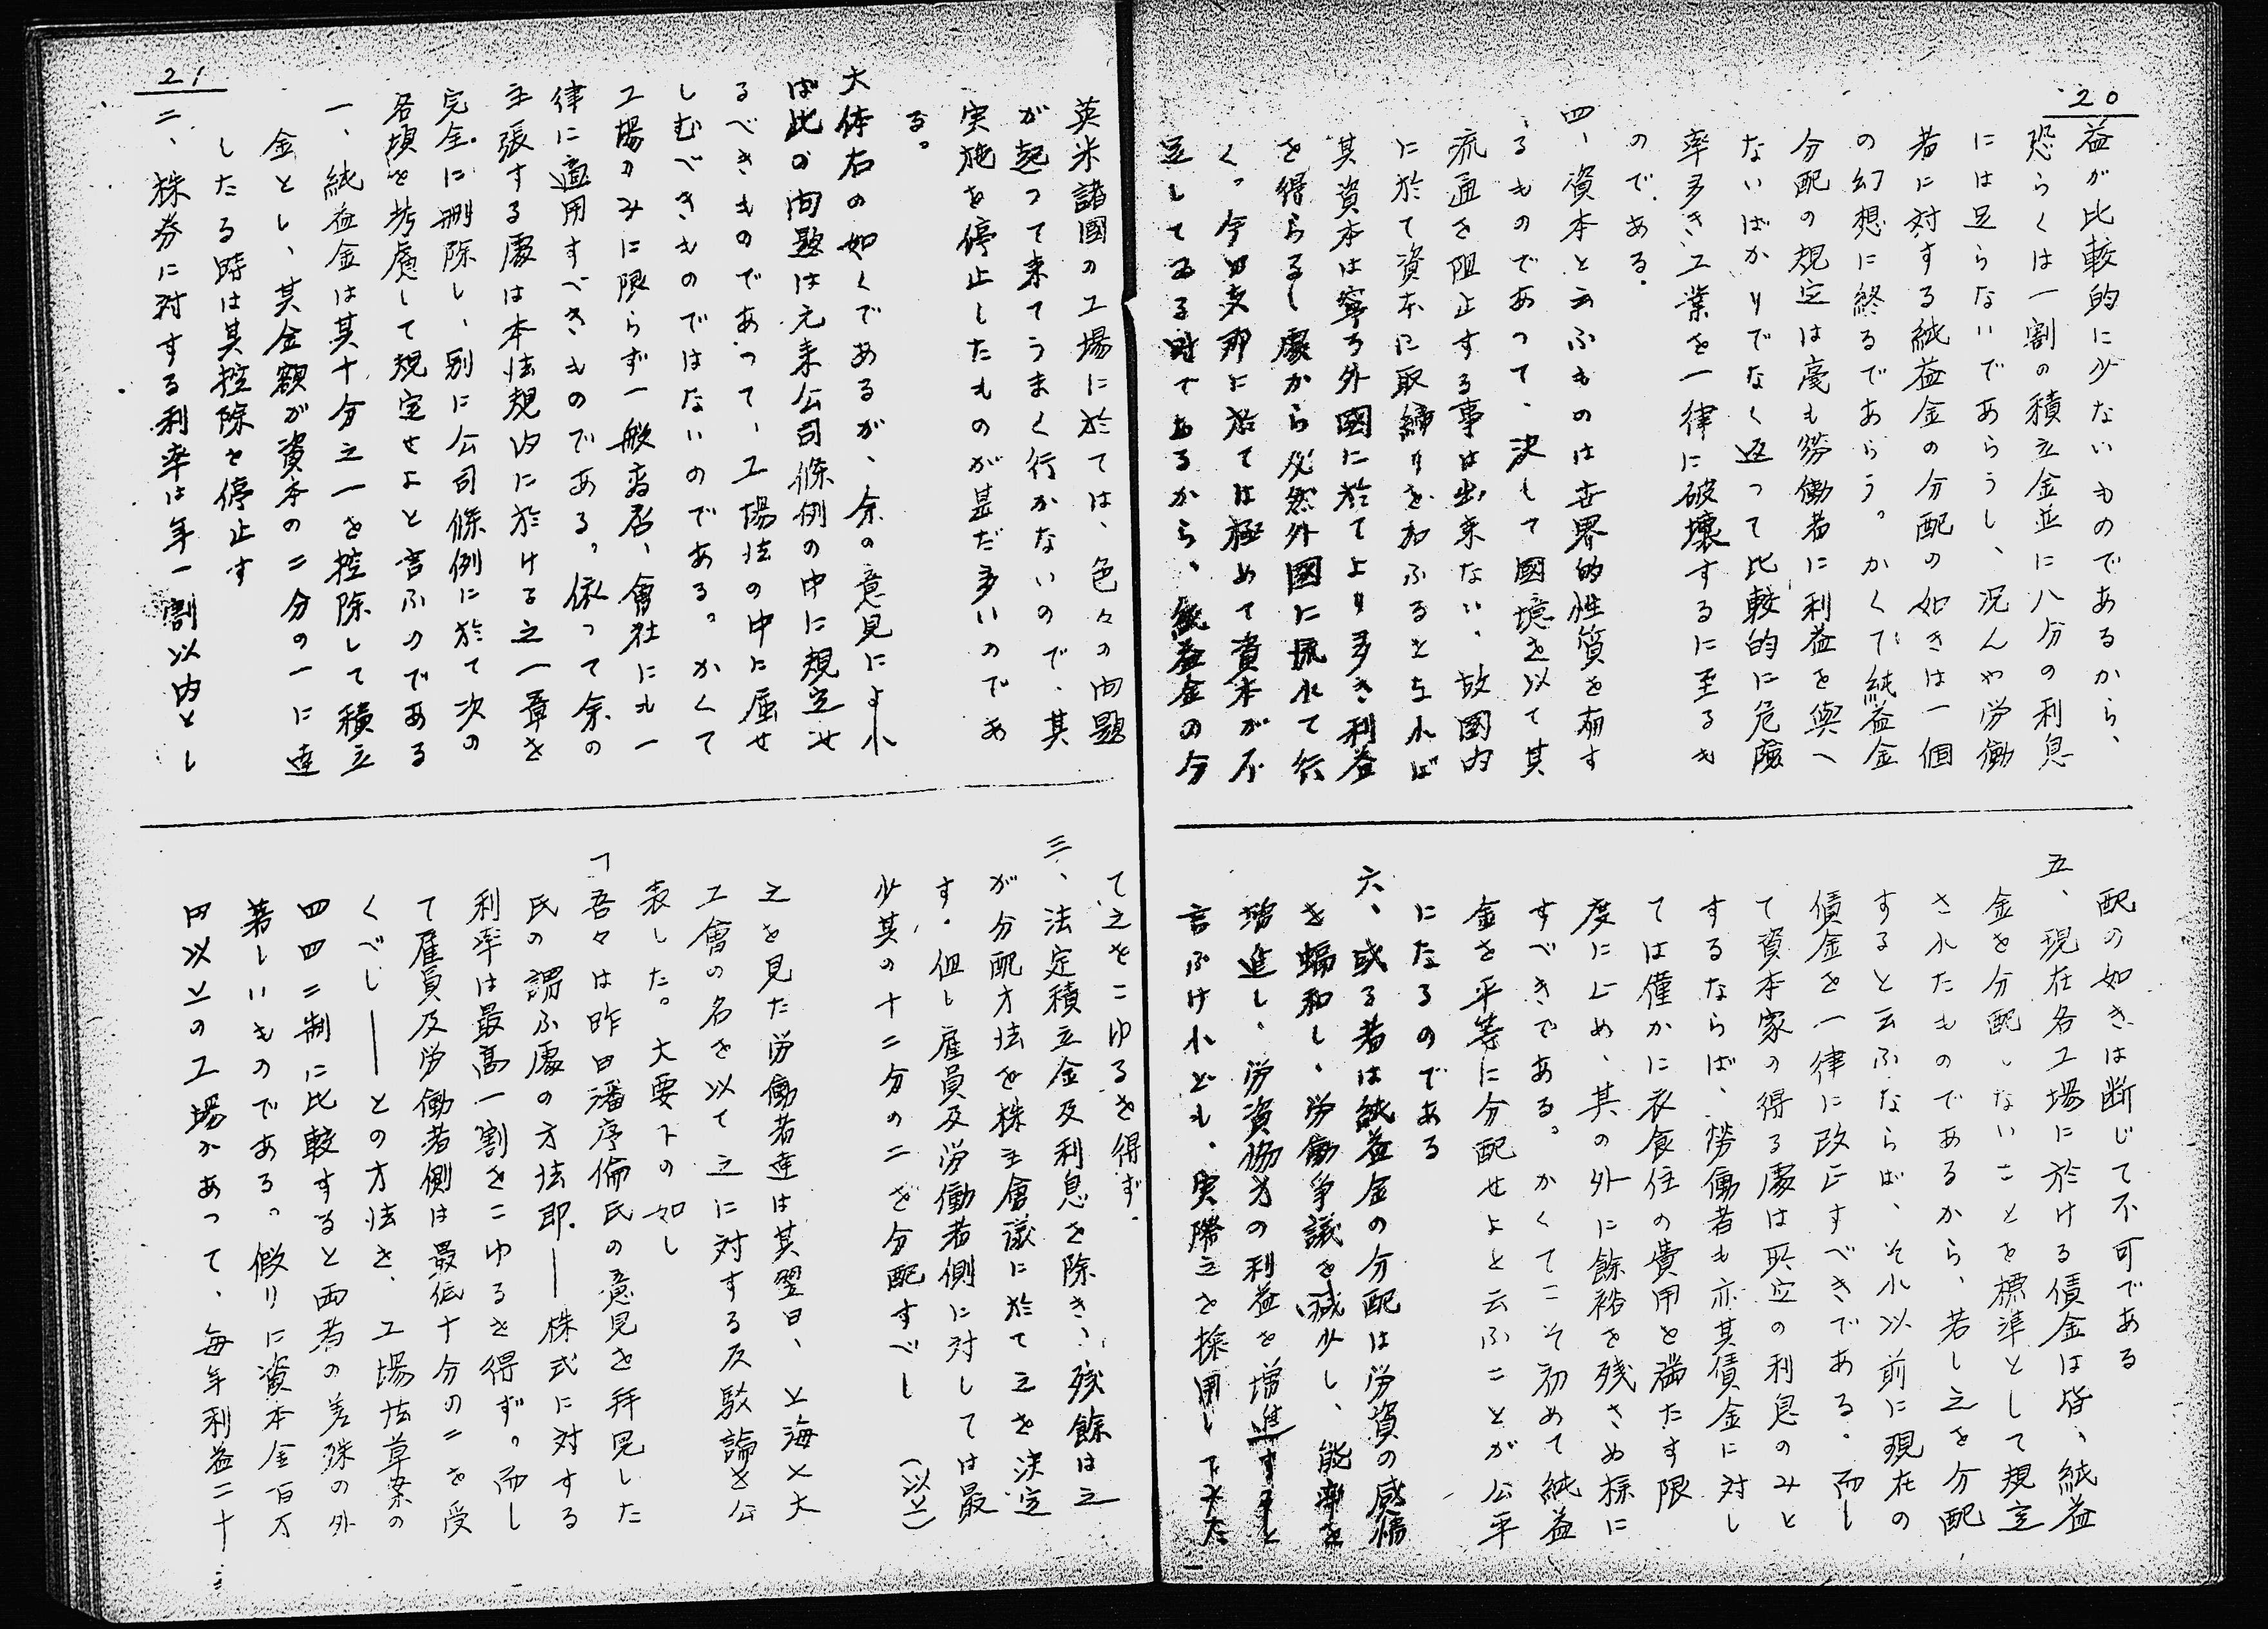 20
益が比較的に少ないものであるから、
恐らくは一割の積立金並に八分の利息
には足らないであらうし、況んや労働
者に対する純益金の分配の如きは一個
の幻想に終るであらう。かくて純益金
分配の規定は毫も労働者に利益を與へ
ないばかりでなく返って比較的に危險
率多き工業を一律に破壊するに至るも
のである.
四、資本と云ふものは世界的性質を有す
るものであって、決して國境を以て其
流通を阻止する事は出来ない、故國内
に於て資本に取締りを加ふるとなれば
其資本は寧ろ外國に於てより多き利益
を得らるゝ處から必然外國に流れて行
く。今日支那に於ては極めて資本が不
足してゐる時であるから、純益金の分
配の如きは断じて不可である
五、現在各工場に於ける債金は皆、純益
金を分配しないことを標準として規定
されたものであるから、若し之を分配
すると云ふならば、それ以前に現在の
債金を一律に改正すべきである.而し
て資本家の得る處は所定の利息のみと
するならば、勞働者も亦其債金に対し
ては僅かに衣食住の費用を満たす限
度に止め、其の外に餘裕を残さぬ様に
すべきである。かくてこそ初めて純益
金を平等に分配せよと云ふことが公平
になるのである
六、或る者は純益金の分配は労資の感情
を融和し、労働争議を減少し、能率を
増進し、労資協力の利益を増進すると
言ふけれども、実際之を採用し
英米諸國の工場に於ては、色々の問題
が起って来てうまく行かないので、其
実施を停止したものが甚だ多いのであ
る。
大体右の如くであるが、余の意見によれ
ば此の問題は元来公司條例の中に規定せ
るべきものであって、工場法の中に屈せ
しむべきものではないのである。かくて
工場のみに限らず一般商店、會社にも一
律に適用すべきものである。依って余の
主張する處は本法規内に於ける之一章を
完全に刪除し、別に公司條例に於て次の
各項を考慮して規定せよと言ふのである
一、純益金は其十分之一を控除して積立
金とし、其金額が資本の二分の一に達
したる時は其控除を停止す
21
二、株券に対する利率は年一割以内とし
て之をこゆるを得ず.
三、法定積立金及利息を除き、残餘は之
が分配方法を株主會議に於て之を決定
す.但し雇員及労働者側に対しては最
少其の十二分の二を分配すべし (以上)
之を見た労働者達は其翌日、上海上大
工會の名を以て之に対する反駁論を公
表した。大要下の如し
「吾々は昨日潘序倫氏の意見を拝見した
氏の謂ふ處の方法即──株式に対する
利率は最高一割をこゆるを得ず。而し
て雇員及労働者側は最低十分の二を受
くべし──との方法を、工場法草案の
四四二制に比較すると両者の差殊の外
著しいものである。假りに資本金百万
円以上の工場があって、毎年利益二十